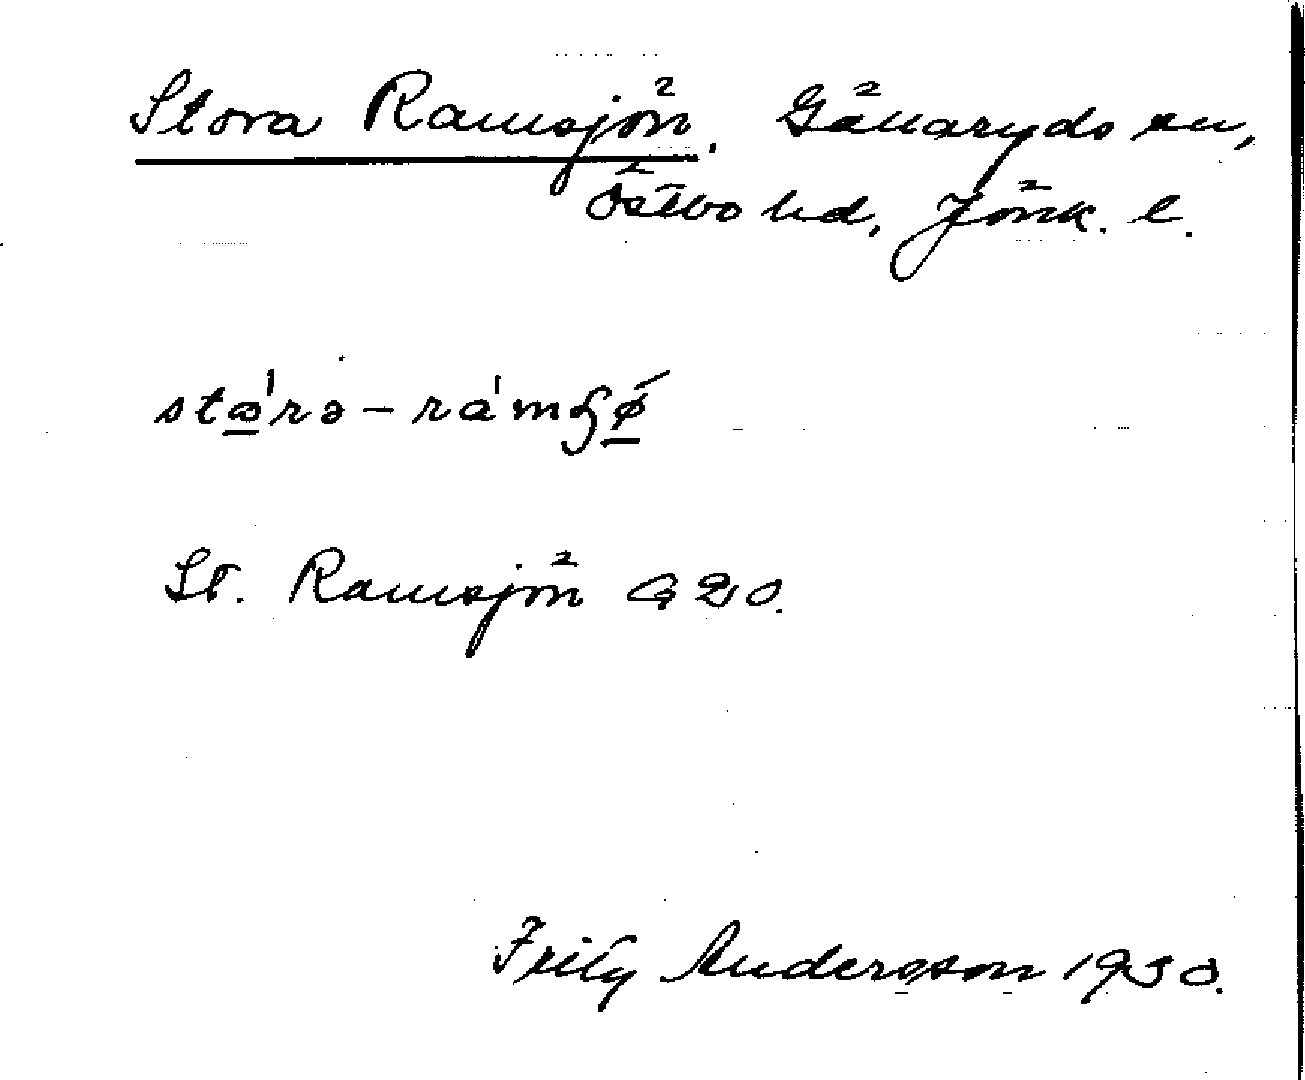 Stora Ramsjön. Gällaryds sn,
Östbo hd, Jönk. l.
stɷ̠'rə – ra'mʂǿ̠
St. Ramsjön G20.
Fritz Andersson 1930.